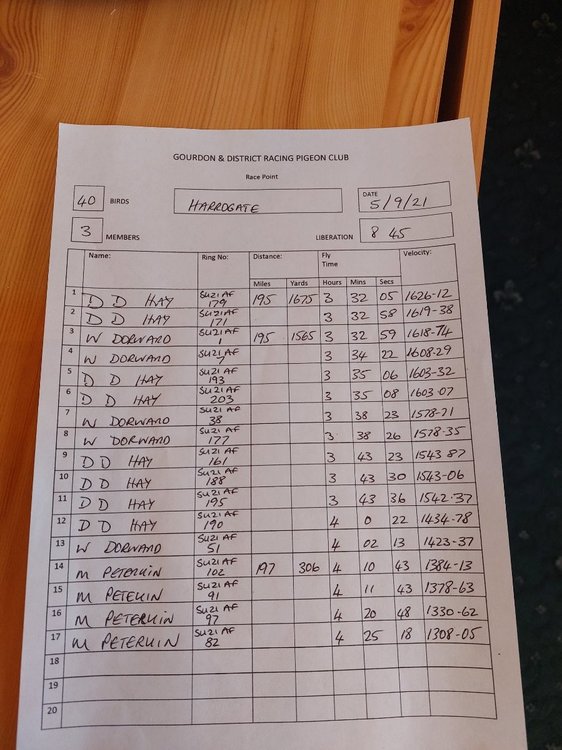 GOURDON & DISTRICT RACING PIGEON CLUB
Race Point
40 BIRDS HARROGATE DATE 5/9/21
3 MEMBERS LIBERATION 8 45
Name: Ring No: Distance: Fly Time Velocity:
Miles Yards Hours Mins Secs
1 D D HAY SU21AF 179 195 1675 3 32 05 1626-12
2 D D HAY SU21AF 171 3 32 58 1619-38
3 W DORWARD SU21AF 1 195 1565 3 32 59 1618-74
4 W DORWARD SU21AF 7 3 34 22 1608-29
5 D D HAY SU21AF 193 3 35 06 1603-32
6 D D HAY SU21AF 203 3 35 08 1603-07
7 W DORWARD SU21AF 38 3 38 23 1578-71
8 W DORWARD SU21AF 177 3 38 26 1578-35
9 D D HAY SU21AF 161 3 43 23 1543 87
10 D D HAY SU21AF 188 3 43 30 1543-06
11 D D HAY SU21AF 195 3 43 36 1542-37
12 D D HAY SU21AF 190 4 0 22 1434-78
13 W DORWARD SU21AF 51 4 02 13 1423-37
14 M PETERKIN SU21AF 102 197 306 4 10 43 1384-13
15 M PETEKIN SU21AF 91 4 11 43 1378-63
16 M PETERKIN SU21AF 97 4 20 48 1330-62
17 M PETERKIN SU21AF 82 4 25 18 1308-05
18
19
20